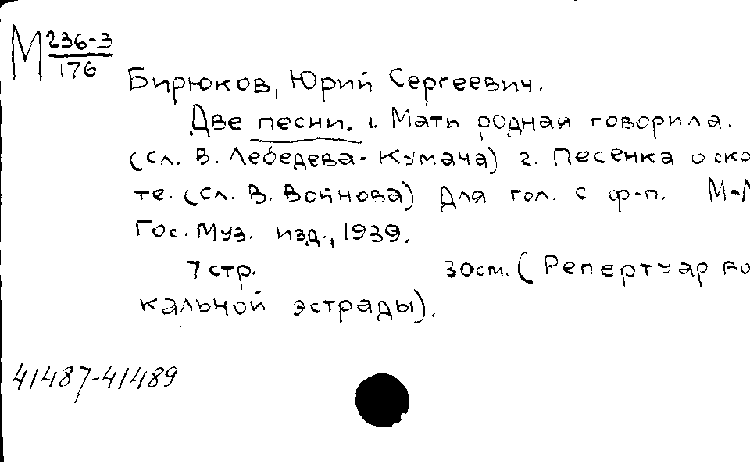 М 236-3
176
Бирюков, Юрий Сергеевич.
Две песни. 1. Мать родная говорила.
(сл. В. Лебедева-Кумача) 2. Песенка о ско
те. (сл. В. Войнова) Для гол. с ф-п. М-Л
Гос. Муз. изд., 1939.
7 стр. 30см. (Репертуар во
кальной эстрады).
41487-41489